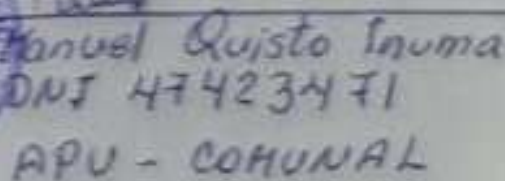 Manuel Quisto Inuma
DNI 47423471
APU - COMUNAL